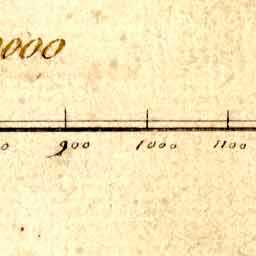 0000
0 900 1000 1100